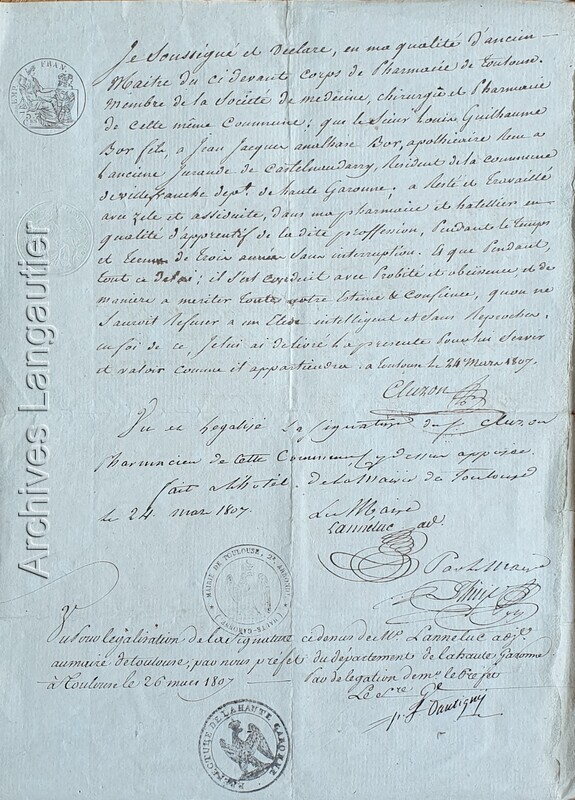 Je Soussigné et Declare, en ma qualité d'ancien
Maitre du ci devant corps de Pharmacie de Toulouse.
Membre de la Société de medecine, chirurgie et Pharmacie
de cette même Commune; que le Sieur Louis Guilhaume
Bor fils, a Jean Jacques Bor, apothicaire Reçu a
L'anciene Jurande de Castelnaudarry, Resident de la commune
de villefranche depᵗ. de haute Garonne; a Resté et Travaillé
avec zele et assiduité, dans ma pharmacie et hattellier en
qualité d'apprentif de la dite proffession, Pendant le Temps
et de Trois années Sans interruption. Et que Pendant,
tout ce delai; il s'est conduit avec Probité et obeicence et de
maniere a meriter Toute notre Estime & Confience, qu'on ne
Sauroit Refuser a un Eleve intelligent et Sans Reproches,
en foi de ce, Je lui ai delivré la presente Pour lui Servir
et valoir comme il appartiendra. a Toulouse le 24 Mars 1807.
Cluzon
Vu et Legalisé La Signature du Sʳ. Cluzon
Pharmacien de Cette Commune cy dessus apposée.
fait a l'hotel de La Mairie de Toulouse
Le 24 mars 1807.
Le Maire
Lanneluc adj
MAIRIE DE TOULOUSE, 2ᵉ ARRONDᵗ
HAUTE-GARONNE
Par Le Maire
Vu Pour légalisation de la Signature ci dessus de Mʳ Lanneluc adjᵗ
au maire de toulouse, par nous préfet du département de la haute Garonne
à Toulouse le 26 mars 1807
Par delegation de mʳ le Préfet
Le Sʳᵉ Gᵃˡ
PREFECTURE DE LA HAUTE GARONNE
Archives Langautier